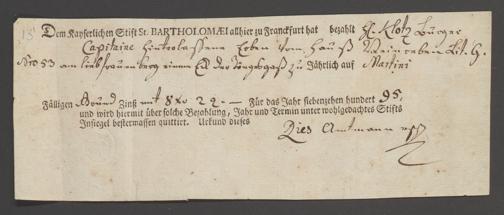 Dem Kayserlichen Stifft St. BARTHOLOMÆI allhier zu Franckfurt hat bezahlt H. Klotz Burger
Capitaine hinterlassene Erben vom Hauß Weinreben Lit. G.
No. 53 am liebfrauenberg einem Eck der Töngesgaß zu Jährlich auf Martini
Fälligen Grund Zinß mit 8 Xr 22 — Für das Jahr siebenzehen hundert 95,
und wird hiermit über solche Bezahlung, Jahr und Termin unter wohlgedachtes Stiffts
Insiegel bestermassen quittiert. Urkund dieses
Dies Amtmann